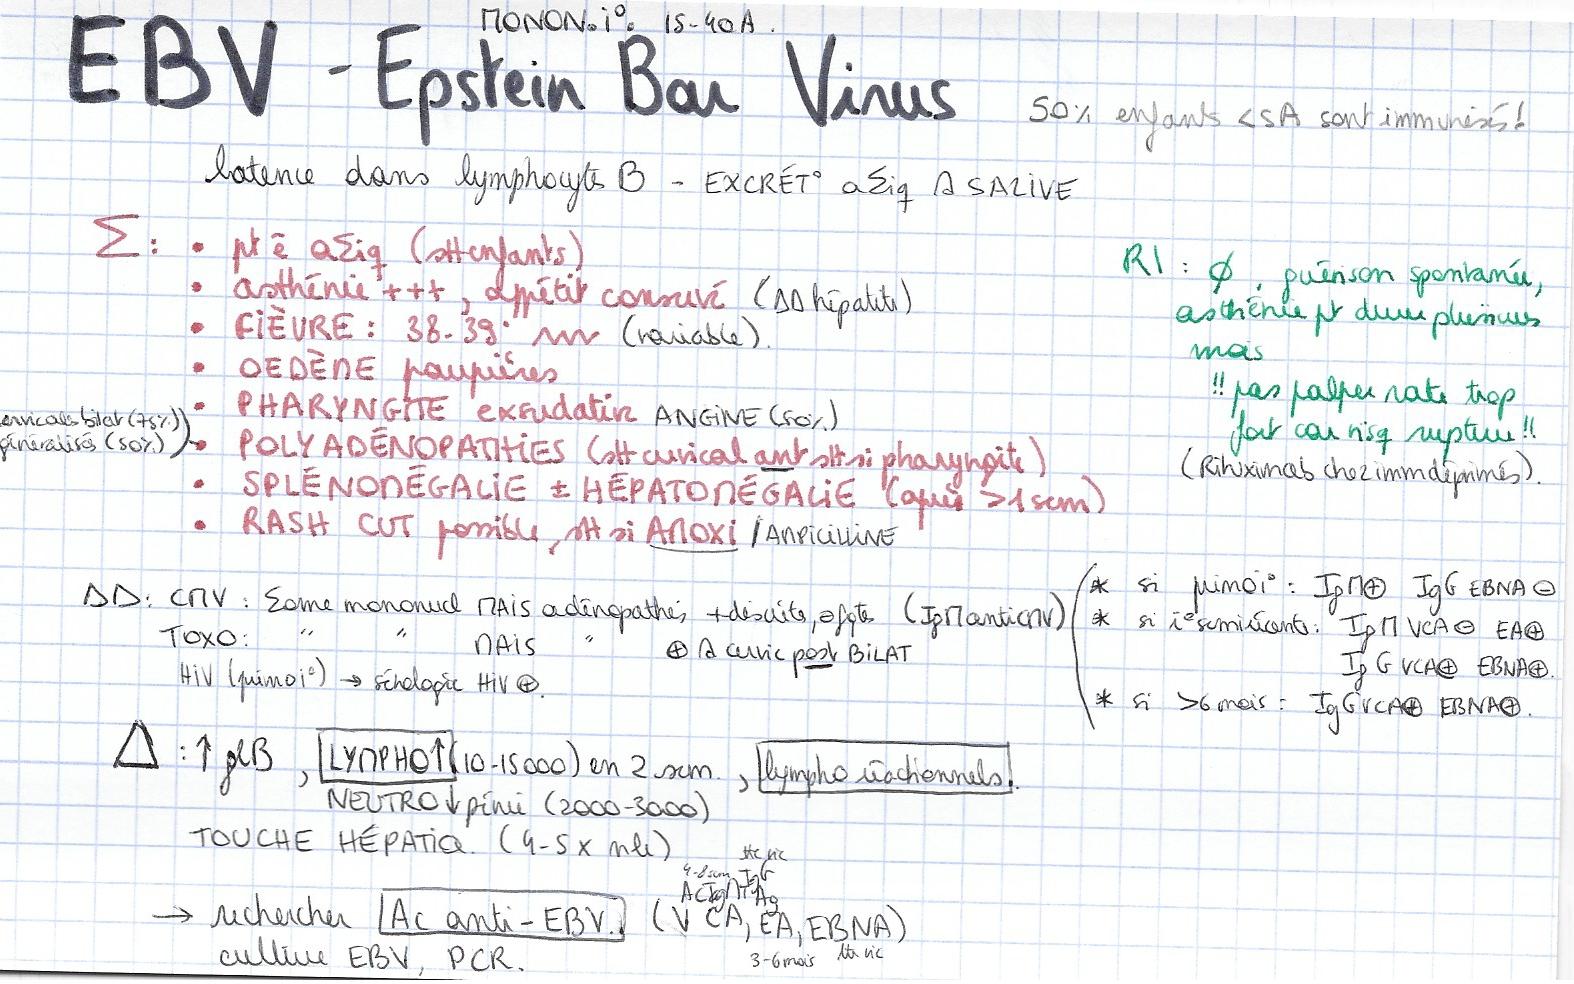 MONON.i°. 15-40A.
EBV - Epstein Bar Virus
50% enfants <5A sont immunisés!
latence dans lymphocyte B - EXCRÉT° aΣiq ds SALIVE
Σ:
• pt ê aΣiq (stt enfants)
• asthénie +++, appétit conservé (ΔΔ hépatite)
• FIÈVRE : 38-39° (variable).
• OEDÈME paupières
• PHARYNGITE exsudative ANGINE (50%)
cervicales bilat (75%)
généralisés (50%)
• POLYADÉNOPATHIES (stt cervical ant stt si pharyngite)
• SPLÉNOMÉGALIE ± HÉPATOMÉGALIE (après >1sem)
• RASH CUT possible, stt si AMOXI / AMPICILLINE
R/ : ∅, guérison spontanée,
asthénie pt durer plusieurs
mois
!! pas palper rate trop
fort car risq rupture !!
(Rituximab chez immdéprimés).
ΔΔ: CMV : Σome mononucl MAIS adénopathies, + desuite, (IgM anti CMV)
TOXO: " " MAIS " ⊕ cervic post BILAT
HIV (primoi°) → sérologie HIV ⊕.
* si primoi° : IgM⊕ IgG EBNA⊖
* si i° semirécente: IgM VCA⊖ EA⊕
IgG VCA⊕ EBNA⊕.
* si >6mois : IgG VCA⊕ EBNA⊕.
Δ : ↑ glB, LYMPHO↑ (10-15000) en 2 sem., lympho réactionnels.
NEUTRO↓pénie (2000-3000)
TOUCHE HÉPATIQ. (4-5x nle)
4-8sem
→ rechercher Ac anti-EBV. (VCA, EA, EBNA)
3-6mois tte vie
culture EBV, PCR.